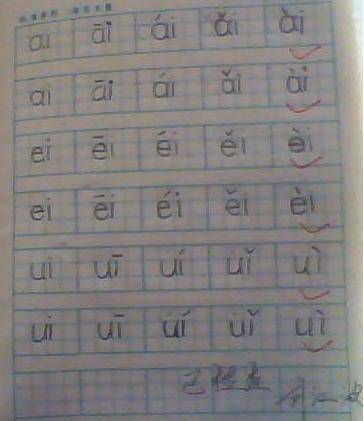 ai āi ái ǎi ài
ai āi ái ǎi ài
ei ēi éi ěi èi
ei ēi éi ěi èi
ui uī uí uǐ uì
ui uī uí uǐ uì
已检查